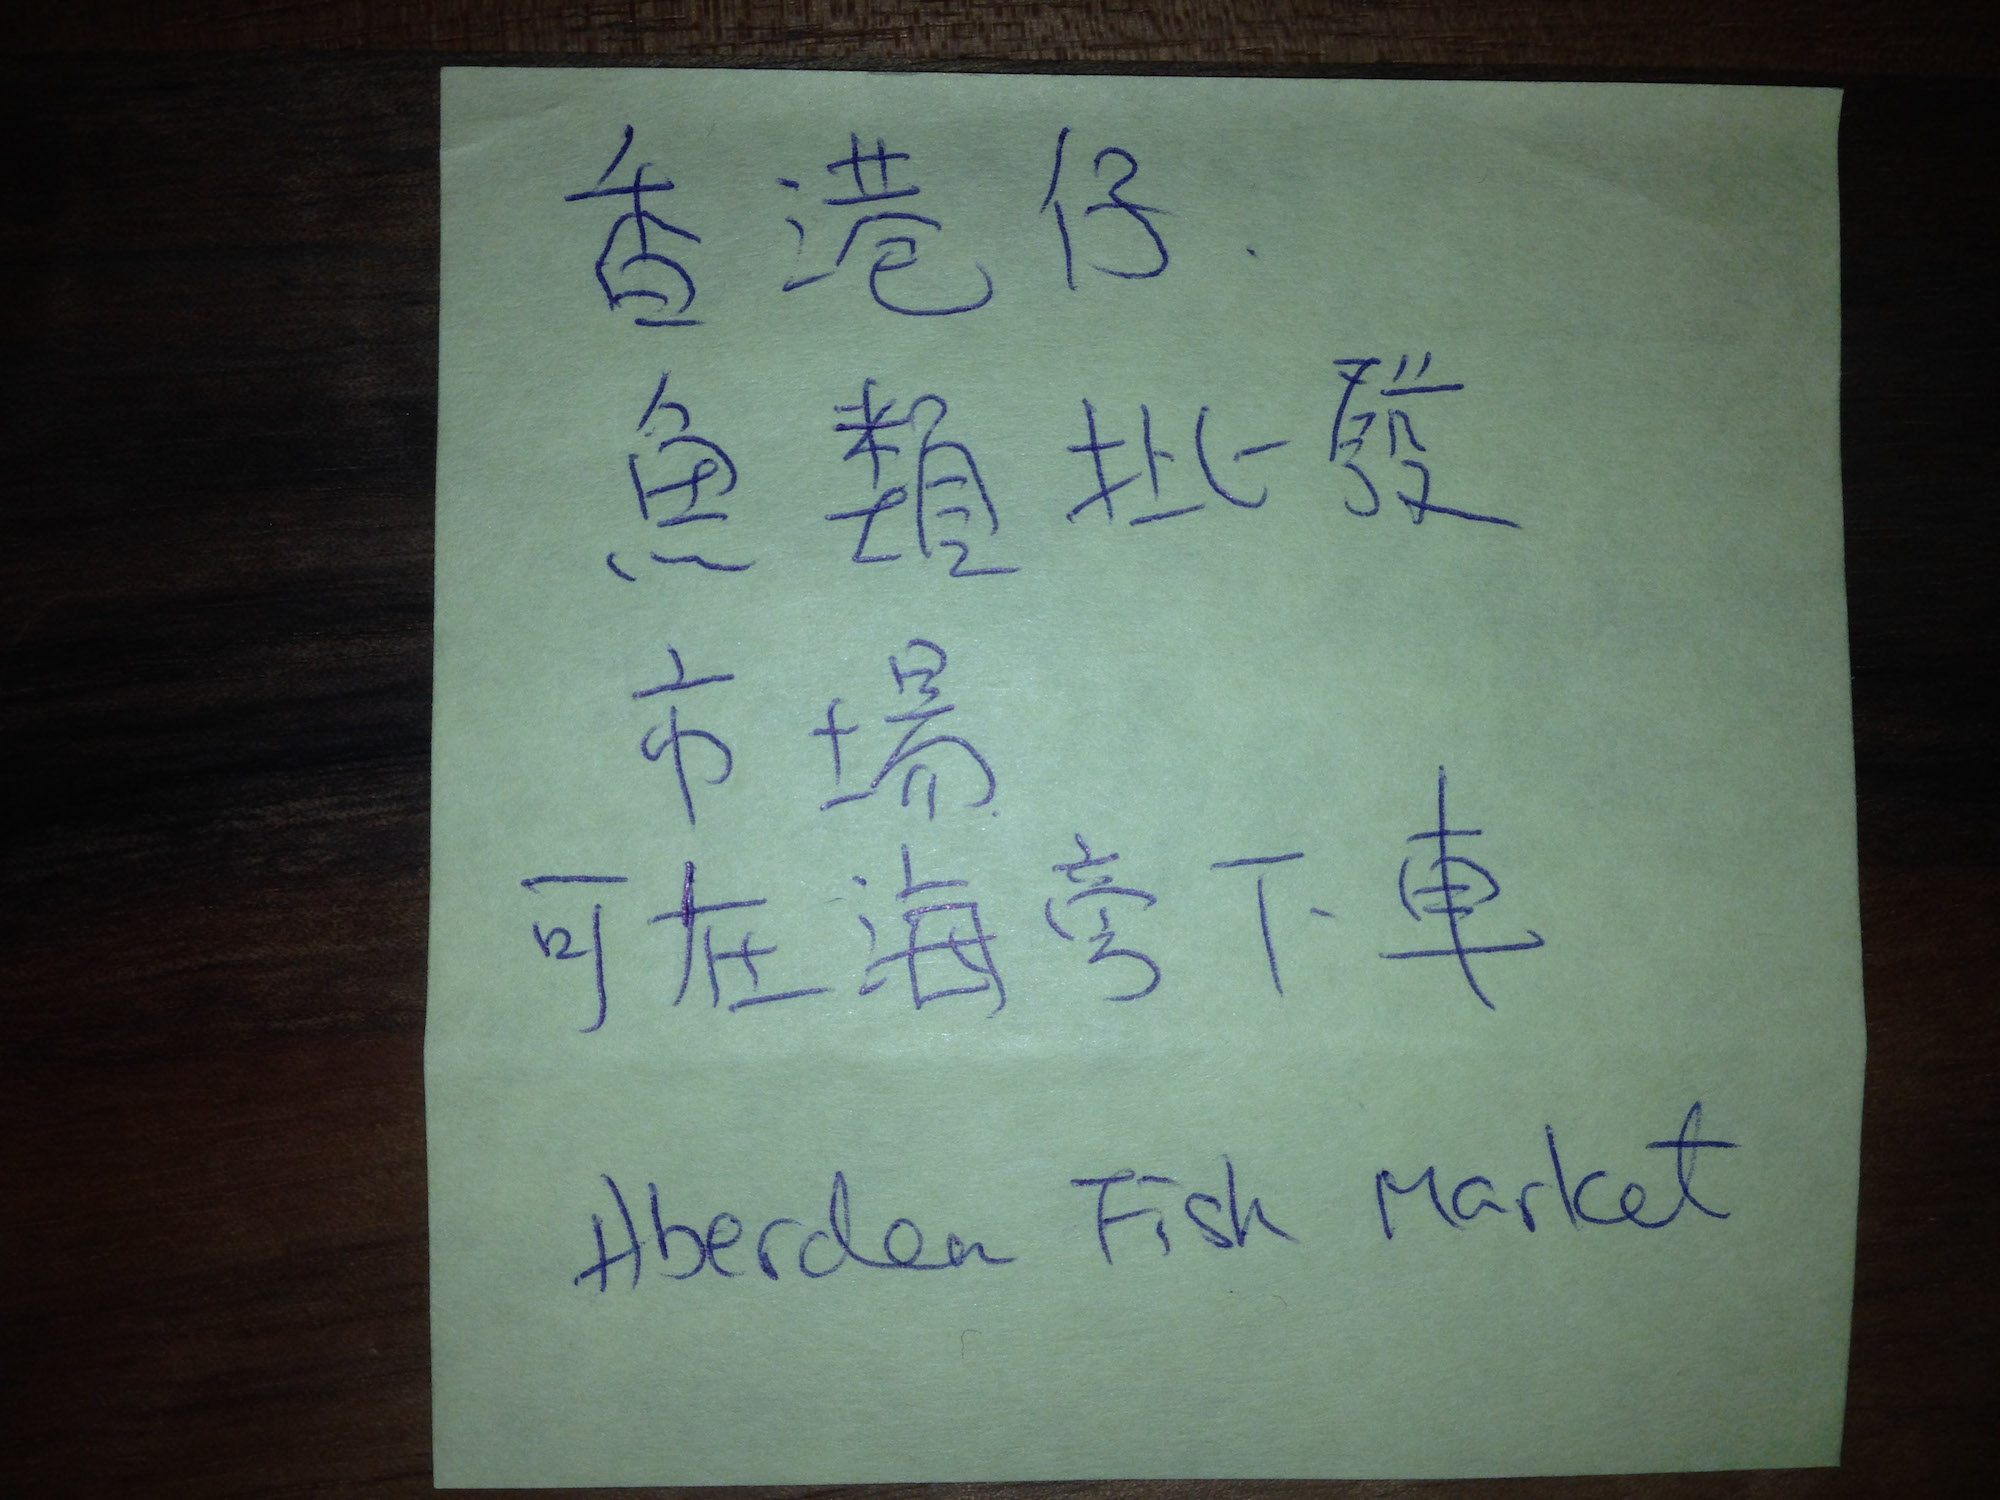 香港仔.
魚類批發
市場
可在海旁下車
Aberden Fish Market